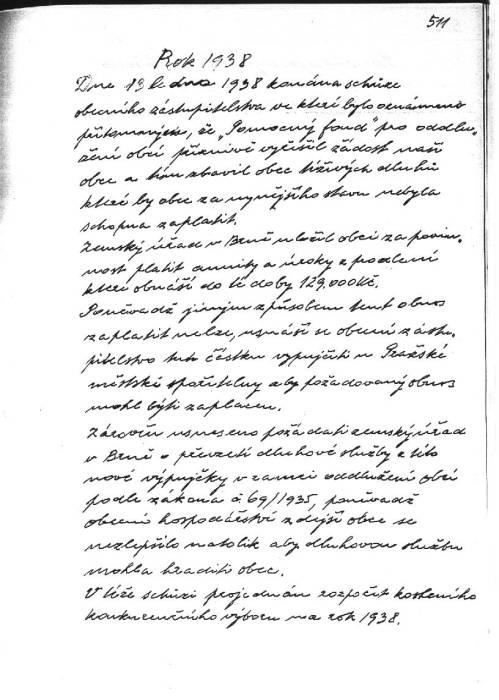 511
Rok 1938
Dne 13 ledna 1938 konána schůze
obecního zástupitelstva ve které bylo oznámeno
přítomným, že „Pomocný fond" pro oddlu-
žení obcí příznivě vyřídil žádost naší
obce a tím zbavil obec tíživých dluhů
které by obec za nynějšího stavu nebyla
schopna zaplatit.
Zemský úřad v Brně uložil obci za povin-
nost platit annuity a úroky z prodlení
které obnáší do té doby 129,000 Kč.
Poněvadž jiným způsobem tent obnos
zaplatit nelze, usnáší se obecní zástu-
pitelstvo tuto částku vypujčiti u Pražské
městské spořitelny aby požadovaný obnos
mohl býti zaplacen.
Zároveň usneseno požádati zemský úřad
v Brně o převzetí dluhové služby z této
nové výpujčky v rámci oddlužení obcí
podle zákona č 69/1935, poněvadž
obecní hospodářství zdejší obce se
nezlepšilo natolik aby dluhovou službu
mohla hraditi obec.
V téže schůzi projednán rozpočet kostelního
konkurenčního výboru na rok 1938.